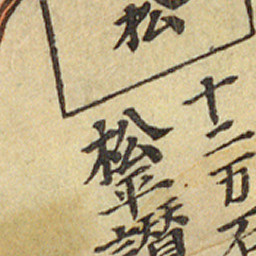 松
十二万石
松平讃